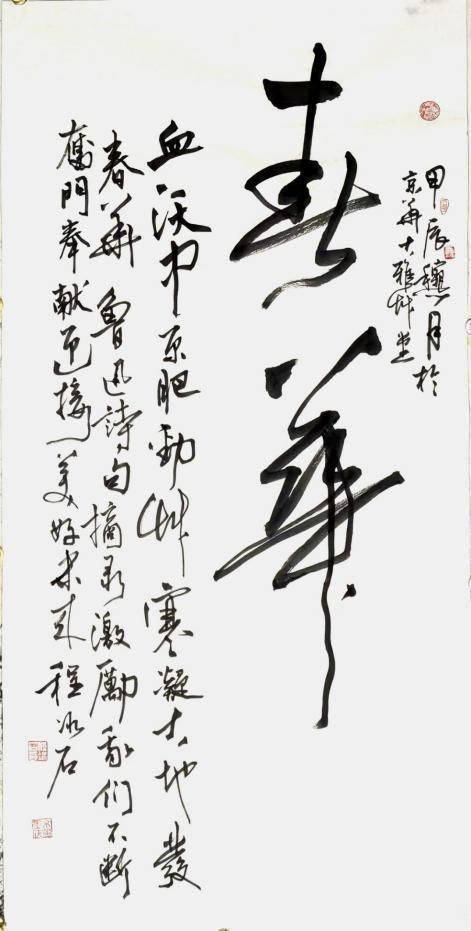 春华
血沃中原肥劲草寒凝大地发
春华鲁迅诗句摘录激励我们不断
奋斗奉献迎接美好未来程冰石
甲辰穗月于
京华大雅草堂